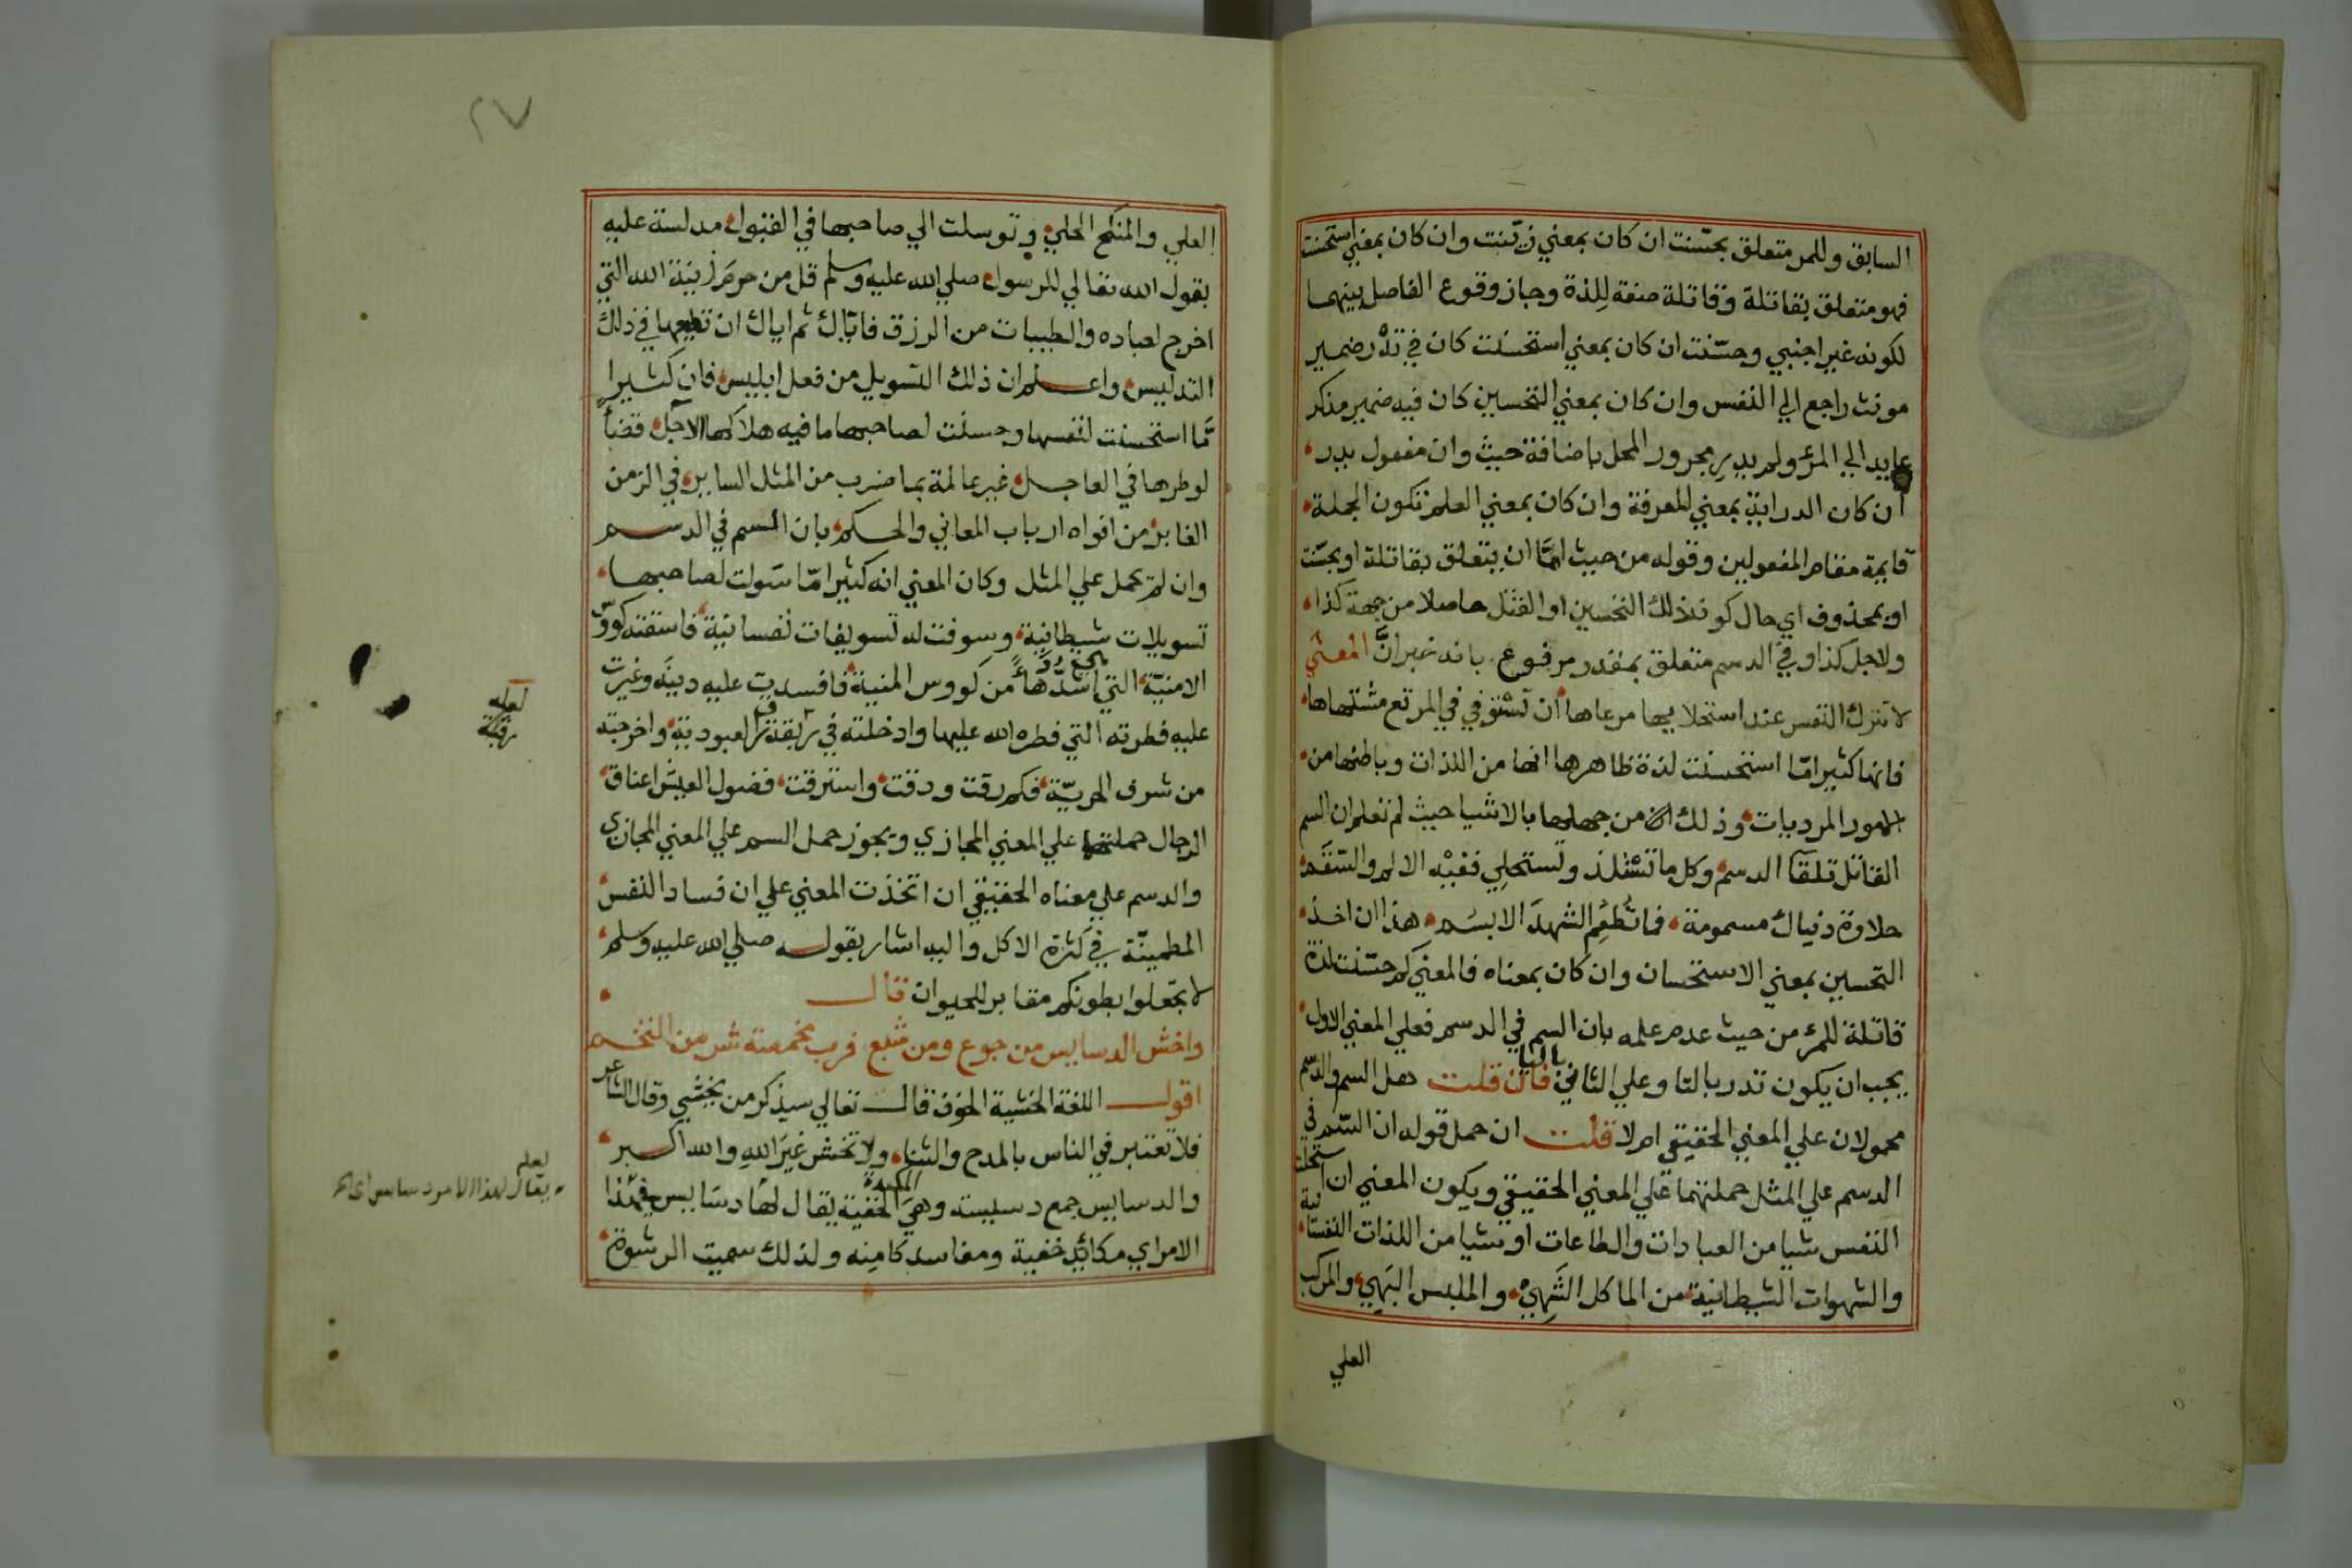 السابق وللمر متعلق بحسّنت ان كان بمعني زيّنت وان كان بمعني استحسنت
فهو متعلق بقاتلة وقاتلة صفة للذة وجاز وقوع الفاصل بينهما
لكونه غير اجنبي وحسّنت ان كان بمعني استحسنت كان في تدْر ضمير
مونث راجع الي النفس وان كان بمعني التحسين كان فيه ضمير مذكر
عايد الي المرء ولم يدر مجرور المحل باضافة حيث وان مفعول يدر
ان كان الدراية بمعني المعرفة وان كان بمعني العلم تكون الجملة
قايمة مقام المفعولين وقوله من حيث امّا ان يتعلق بقاتلة او بحسّنت
او بمحذوف اي حال كون ذلك التحسين او القتل حاصلا من جهة كذا
ولاجل كذا وفي الدسم متعلق بمقدر مرفوع بانه خبر انَّ المعني
لا تترك النفس عند استحلايها مرعاها ان تستوفي في المرتع مشتهاها
فانها كثيرا مّا استحسنت لذة ظاهرها انها من اللذات وباطنها من
الامور المرديات وذلك من جهلها بالاشيا حيث لم تعلم ان السم
القاتل تلقآ الدسم وكل ما تستلذ وتستحلي ففيْه الالم والسّقم
حلاوة دنياك مسمومة فما تُطعِم الشهدَ الا بسَم هذا ان اخذ
التحسين بمعني الاستحسان وان كان بمعناه فالمعني كم حسّنت لذة
قاتلة للمرء من حيث عدم علمه بان السم في الدسم فعلي المعني الاول
يجب ان يكون تدر بالتا وعلي الثاني باليا فان قلت هل السم والدسم
محمولان علي المعني الحقيقي ام لا قلت ان حمل قوله ان السّم في
الدسم علي المثل حملتهما علي المعني الحقيقي ويكون المعني ان استحلت
النفس شيا من العبادات والطاعات او شيا من اللذات النفسانية
والشهوات الشيطانية من الماكل الشَهِيّ والملبس البَهِي والمركب
العلي
٢٧
العلي والمنكح الحلي وتوسلت الي صاحبها في القبول مدلسة عليه
بقول الله تعالي للرسول صلي الله عليه وسلم قل من حرم زينة الله التي
اخرج لعباده والطيبات من الرزق فايّاك ثم اياك ان تطيعها في ذلك
التدليس واعلم ان ذلك التسويل من فعل ابليس فان كثيرا
مّا استحسنت لنفسها وحسنت لصاحبها ما فيه هلاكها الآجل قضأ
لوطرها في العاجل غير عالمة بما ضرب من المثل الساير في الزمن
الغابر من افواه ارباب المعاني والحكم بان السم في الدسم
وان لم يحمل علي المثل وكان المعني انه كثيرا مّا سَولت لصاحبها
تسويلات شيطانية وسوفت له تسويفات نفسانية فاسقته كووس
الامنيّة التي اشدّها من كووس المنية فافسدت عليه دينَه وغيرت
عليه فطرته التي فطره الله عليها وادخلته في ربقة العبودية واخرجته
من شرف الحريّة فكم رقت ودقت واسترقت فضول العيش اعناق
الرجال حملتها علي المعني المجازي ويجوز حمل السم علي المعني المجازي
والدسم علي معناه الحقيقي ان اتخذت المعني علي ان فساد النفس
المطمينّة في كثرة الاكل واليه اشار بقوله صلي الله عليه وسلم
لا تجعلوا بطونكم مقابر للحيوان قال
واخش الدسايس من جوع ومن شبع فرب مخمصة شر من التخم
اقول اللغة الخشية الخوف قال تعالي سيذكر من يخشي وقال الشاعر
فلا تعتبر في الناس بالمدح والثنا ولا تخش غيرَ اللهِ والله اكبر
والدسايس جمع دسيسة وهي المكيدة الخفية يقال لها دسَايس في هذا
الامر اي مكائد خفية ومفاسد كامنه ولذلك سميت الرشوة
لعله
رقبة
لعله
يقال لهذا الامر دسايس اي الخ